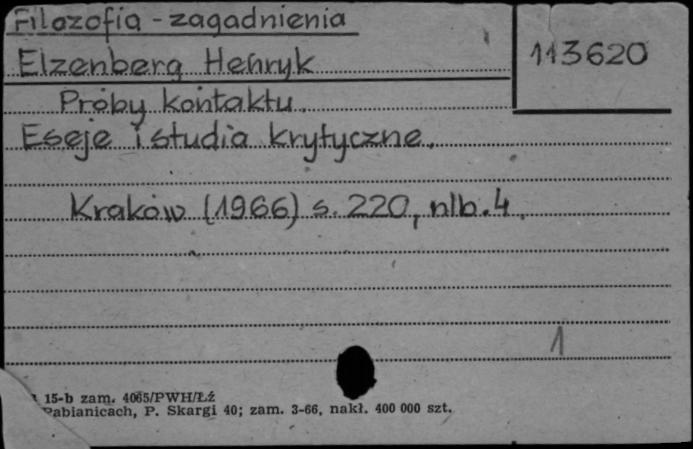 Filozofia - zagadnienia
Elzenberg Henryk
113620
Próby kontaktu.
Eseje i studia krytyczne.
Kraków (1966) s. 220, nlb. 4.
1
15-b zam. 4065/PWH/Łź
Pabianicach, P. Skargi 40; zam. 3-66, nakł. 400 000 szt.